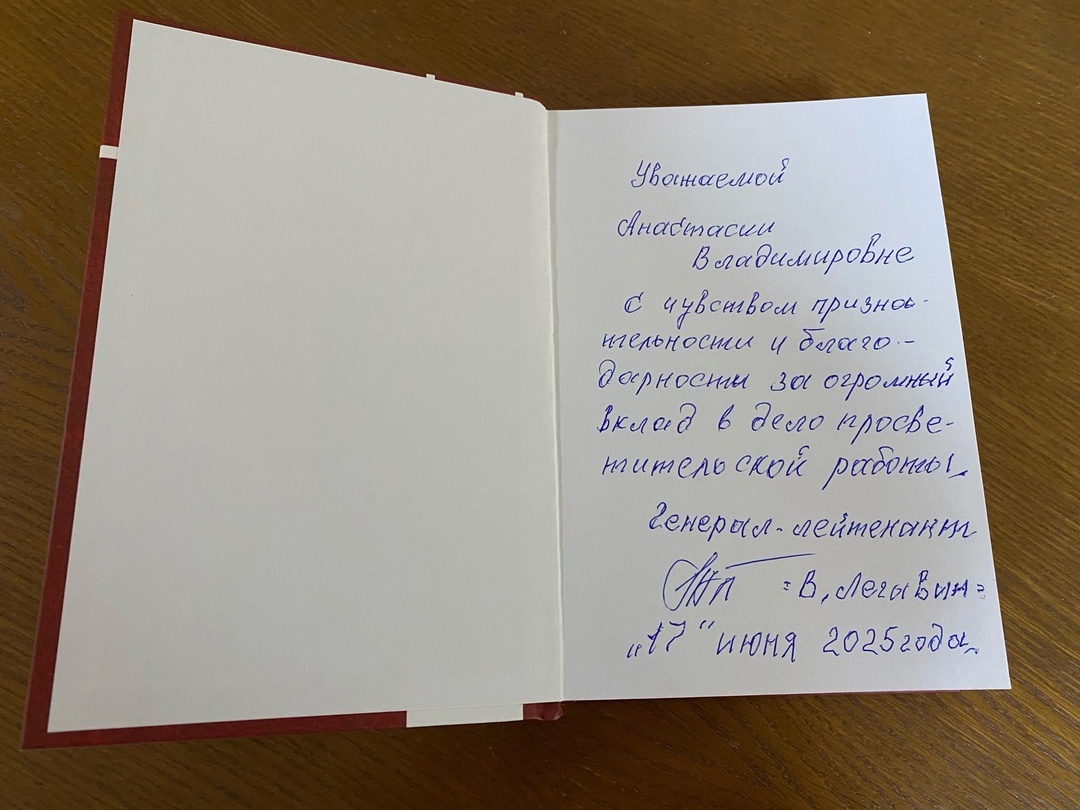 Уважаемой
Анастасии
Владимировне
с чувством призна-
тельности и благо-
дарности за огромный
вклад в дело просве-
тительской работы.
Генерал-лейтенант
В.
"17" июня 2025 года.